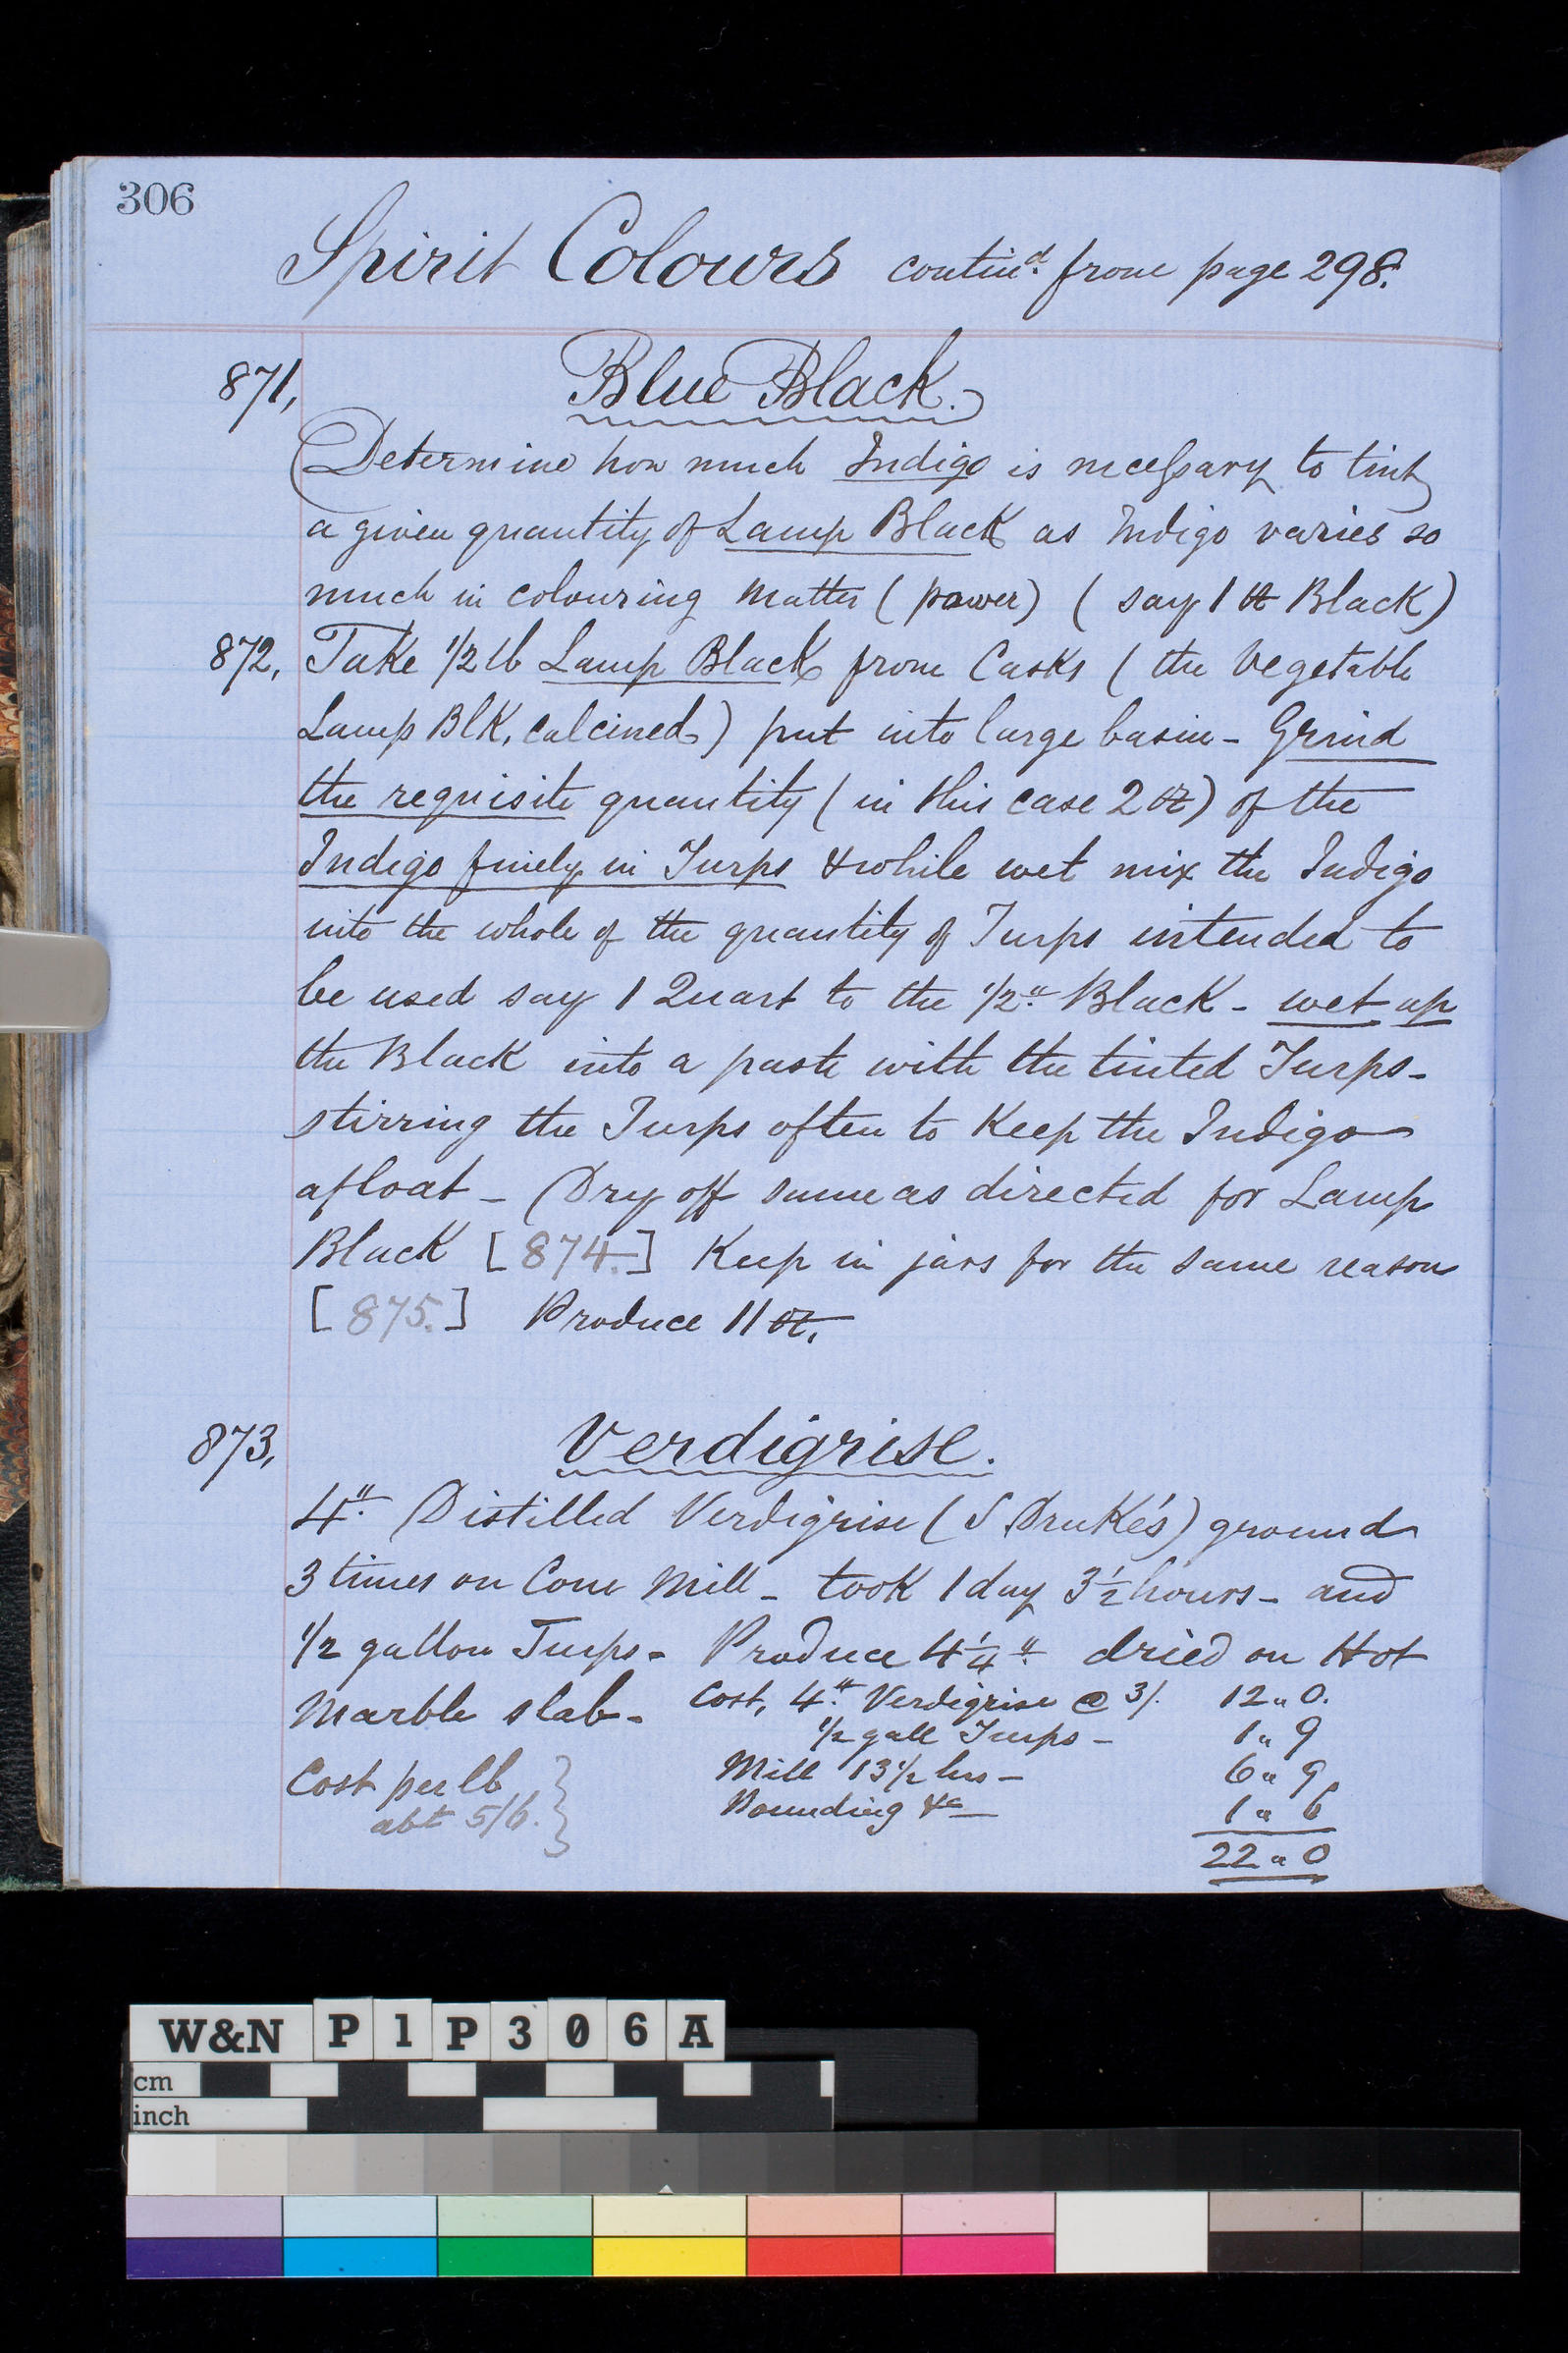 306
Spirit Colours contin'd from page 298.
871, Blue Black.
Determine how much Indigo is necessary to tint
a given quantity of Lamp Black as Indigo varies so
much in colouring matter (power) (say 1 lb Black)
872, Take 1/2 lb Lamp Black from Casks (the Vegetable
Lamp Blk, calcined) put into large basin - Grind
the requisite quantity (in this case 2 oz) of the
Indigo finely in Turps & while wet mix the Indigo
into the whole of the quantity of Turps intended to
be used say 1 Quart to the 1/2 " Black - wet up
the Black into a paste with the tinted Turps -
stirring the Turps often to Keep the Indigo
afloat - Dry off same as directed for Lamp
Black [874.] Keep in jars for the same reason
[875.] Produce 11 oz.
873, Verdigrise.
4" Distilled Verdigrise (S Druke's) ground
3 times on Cone Mill - took 1 day 3 1/2 hours - and
1/2 gallon Turps - Produce 4 1/4 " dried on Hot
Marble slab - Cost, 4" Verdigrise @ 3/. 12 " 0.
1/2 gall Turps - 1 " 9
Cost per lb Mill 13 1/2 hrs - 6 " 9
abt 5/6. Pounding &c - 1 " 6
22 " 0
W&N P1P306A
cm
inch